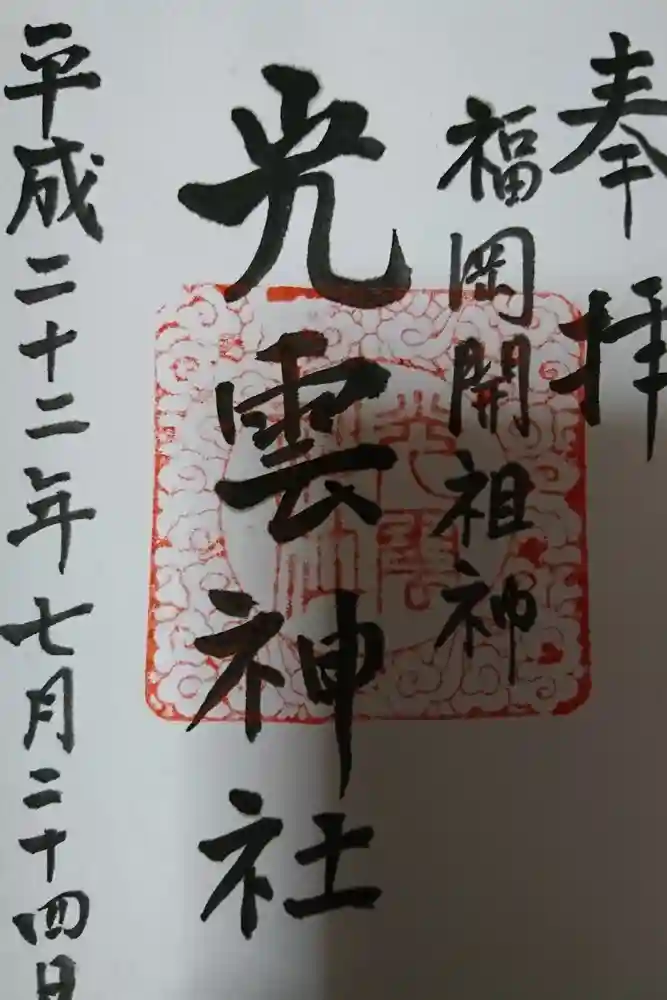 奉拝
福岡開祖神
光雲神社
平成二十二年七月二十四日
光雲
神社